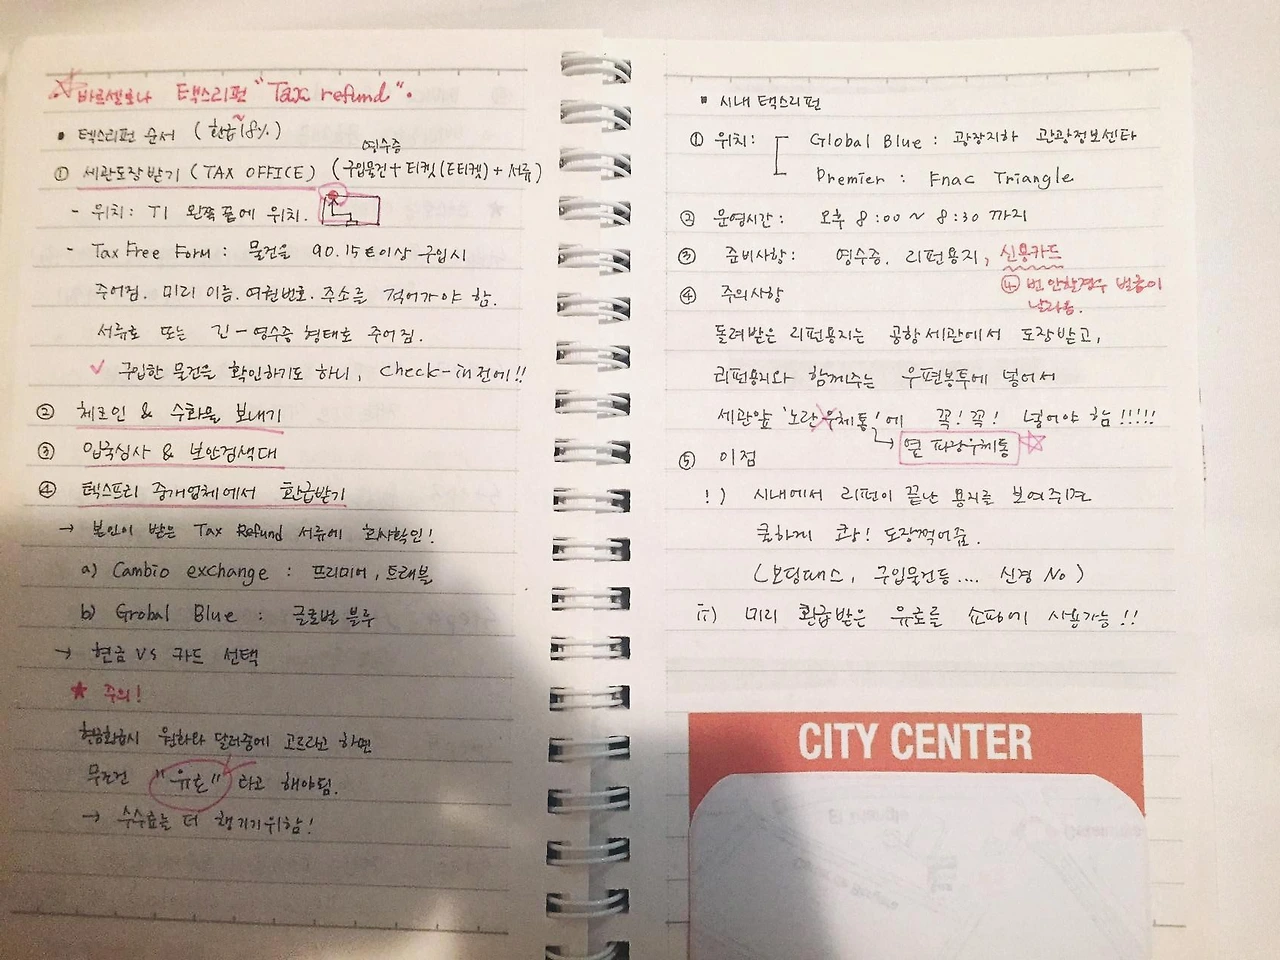 바르셀로나 텍스리펀 "Tax refund".
• 텍스리펀 순서 (환급 ~18%)
영수증
① 세관도장받기 (TAX OFFICE) (구입물건 + 티켓(E티켓) + 서류)
- 위치: T1 왼쪽 끝에 위치.
- Tax Free Form : 물건을 90.15€이상 구입시
주어짐. 미리 이름. 여권번호. 주소를 적어가야 함.
서류로 또는 긴 - 영수증 형태로 주어짐.
✓ 구입한 물건을 확인하기도 하니, check-in전에!!
② 체크인 & 수화물 보내기
③ 입국심사 & 보안검색대
④ 텍스프리 중개업체에서 환급받기
→ 본인이 받은 Tax Refund 서류에 회사확인!
a) Cambio exchange : 프리미어, 트래블
b) Grobal Blue : 글로벌 블루
→ 현금 VS 카드 선택
★ 주의!
현금환급시 원화와 달러중에 고르라고 하면
무조건 "유로" 라고 해야됨.
→ 수수료는 더 챙기기위함!
▪ 시내 텍스리펀
① 위치: Global Blue : 광장지하 관광정보센타
Premier : Fnac Triangle
② 운영시간: 오후 8:00 ~ 8:30 까지
③ 준비사항: 영수증. 리펀용지, 신용카드
④ 주의사항
④번 안할경우 벌금이
날라옴.
돌려받은 리펀용지는 공항세관에서 도장받고,
리펀용지와 함께주는 우편봉투에 넣어서
세관앞 '노란우체통'에 꼭! 꼭! 넣어야 함!!!!!
→ 옆 파랑우체통
⑤ 이점
i) 시내에서 리펀이 끝난 용지를 보여주면
쿨하게 쾅! 도장찍어줌.
(보딩패스, 구입물건등.... 신경 No)
ii) 미리 환급받은 유로를 쇼핑에 사용가능!!
CITY CENTER